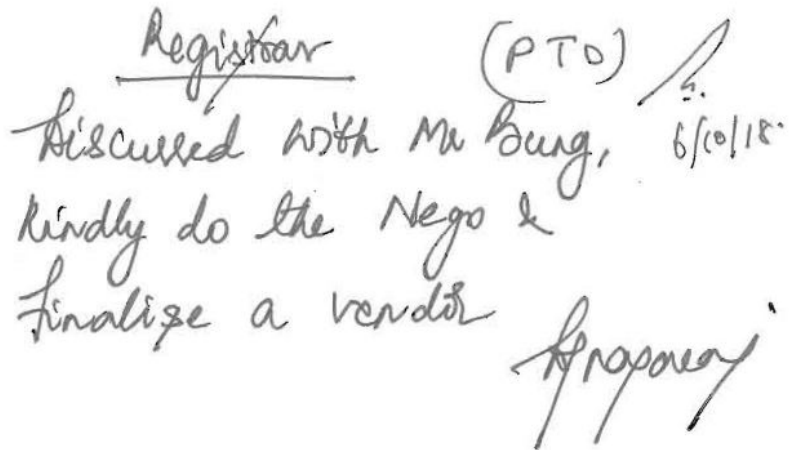 Registrar (PTO)
Discussed with Mr Bung, 6/10/18.
Kindly do the Nego &
Finalise a vendor